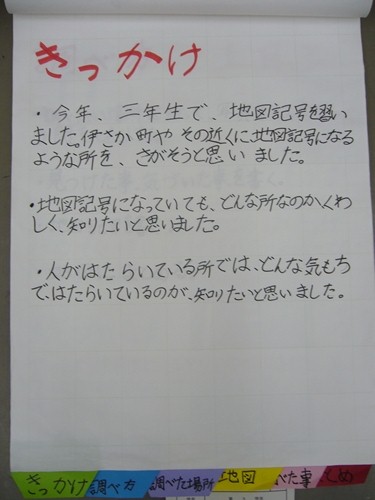 きっかけ
・今年、三年生で、地図記号を習い
ました。伊さか町や その近くに、地図記号になる
ような所を、さがそうと思いました。
・地図記号になっていても、どんな所なのかくわ
しく、知りたいと思いました。
・人がはたらいている所では、どんな気もち
で、はたらいているのか、知りたいと思いました。
きっかけ 調べ方 調べた場所 地図 べた事 とめ